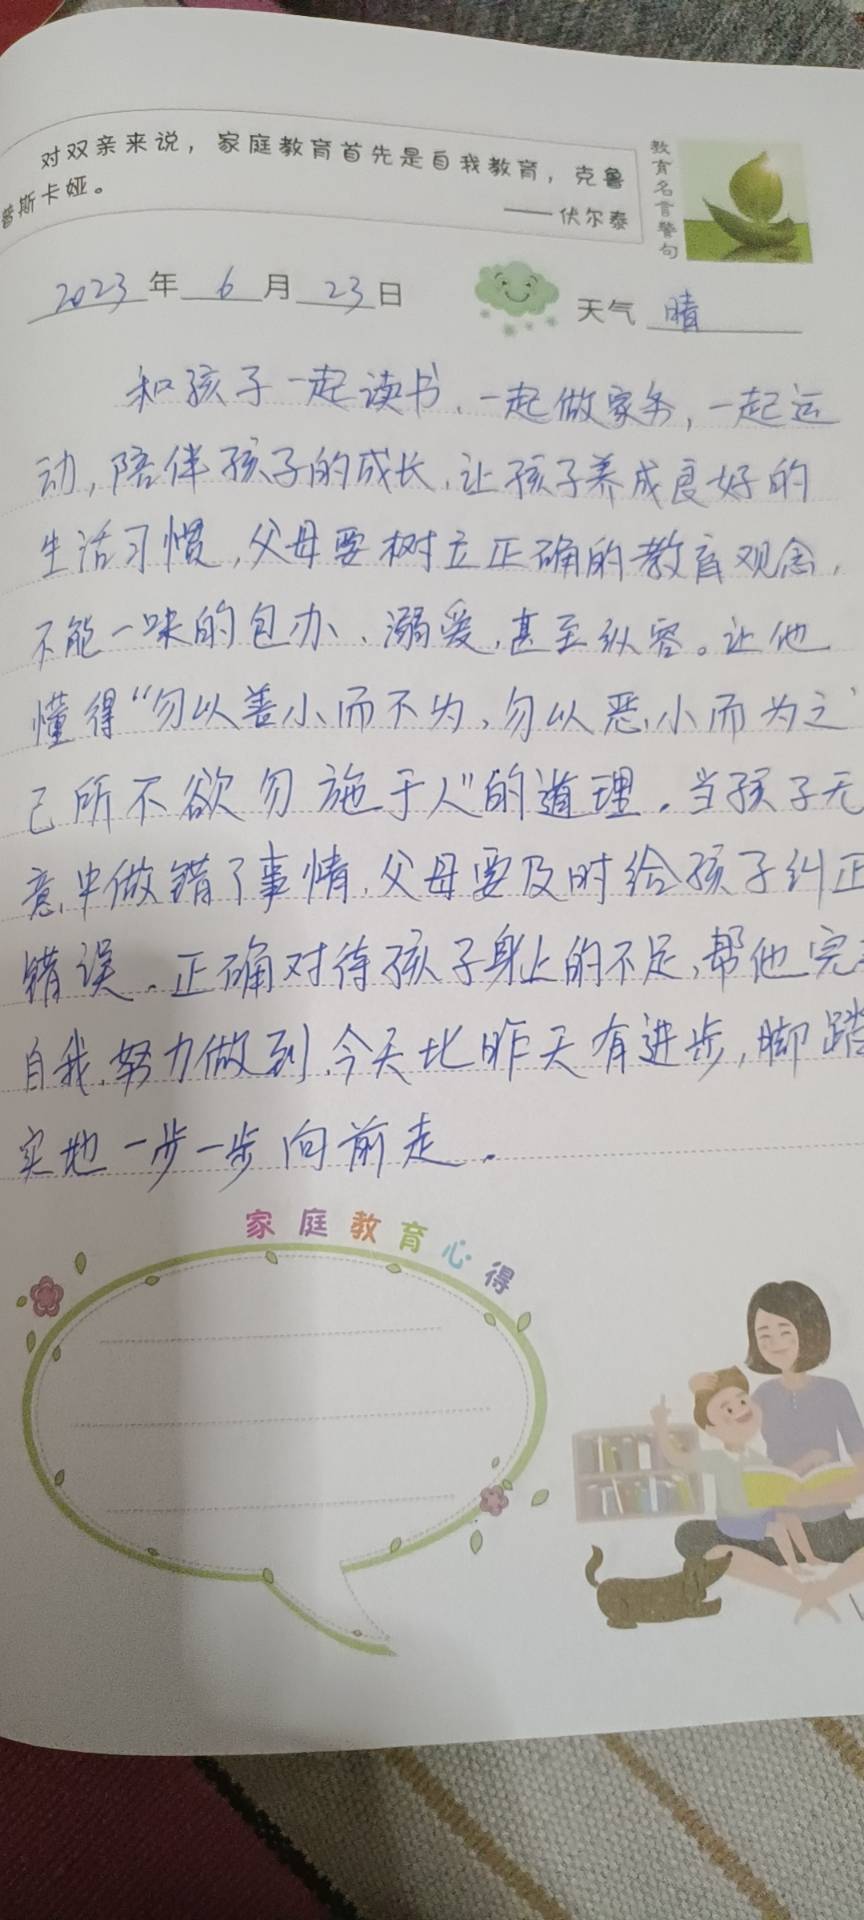 对双亲来说，家庭教育首先是自我教育，克鲁
普斯卡娅。
——伏尔泰
教育名言警句
2023年6月23日
天气 晴
和孩子一起读书、一起做家务，一起运
动，陪伴孩子的成长，让孩子养成良好的
生活习惯，父母要树立正确的教育观念，
不能一味的包办、溺爱，甚至纵容。让他
懂得“勿以善小而不为，勿以恶小而为之
己所不欲勿施于人”的道理。当孩子无
意中做错了事情，父母要及时给孩子纠正
错误。正确对待孩子身上的不足，帮他完
自我，努力做到，今天比昨天有进步，脚踏
实地一步一步向前走。
家庭教育心得